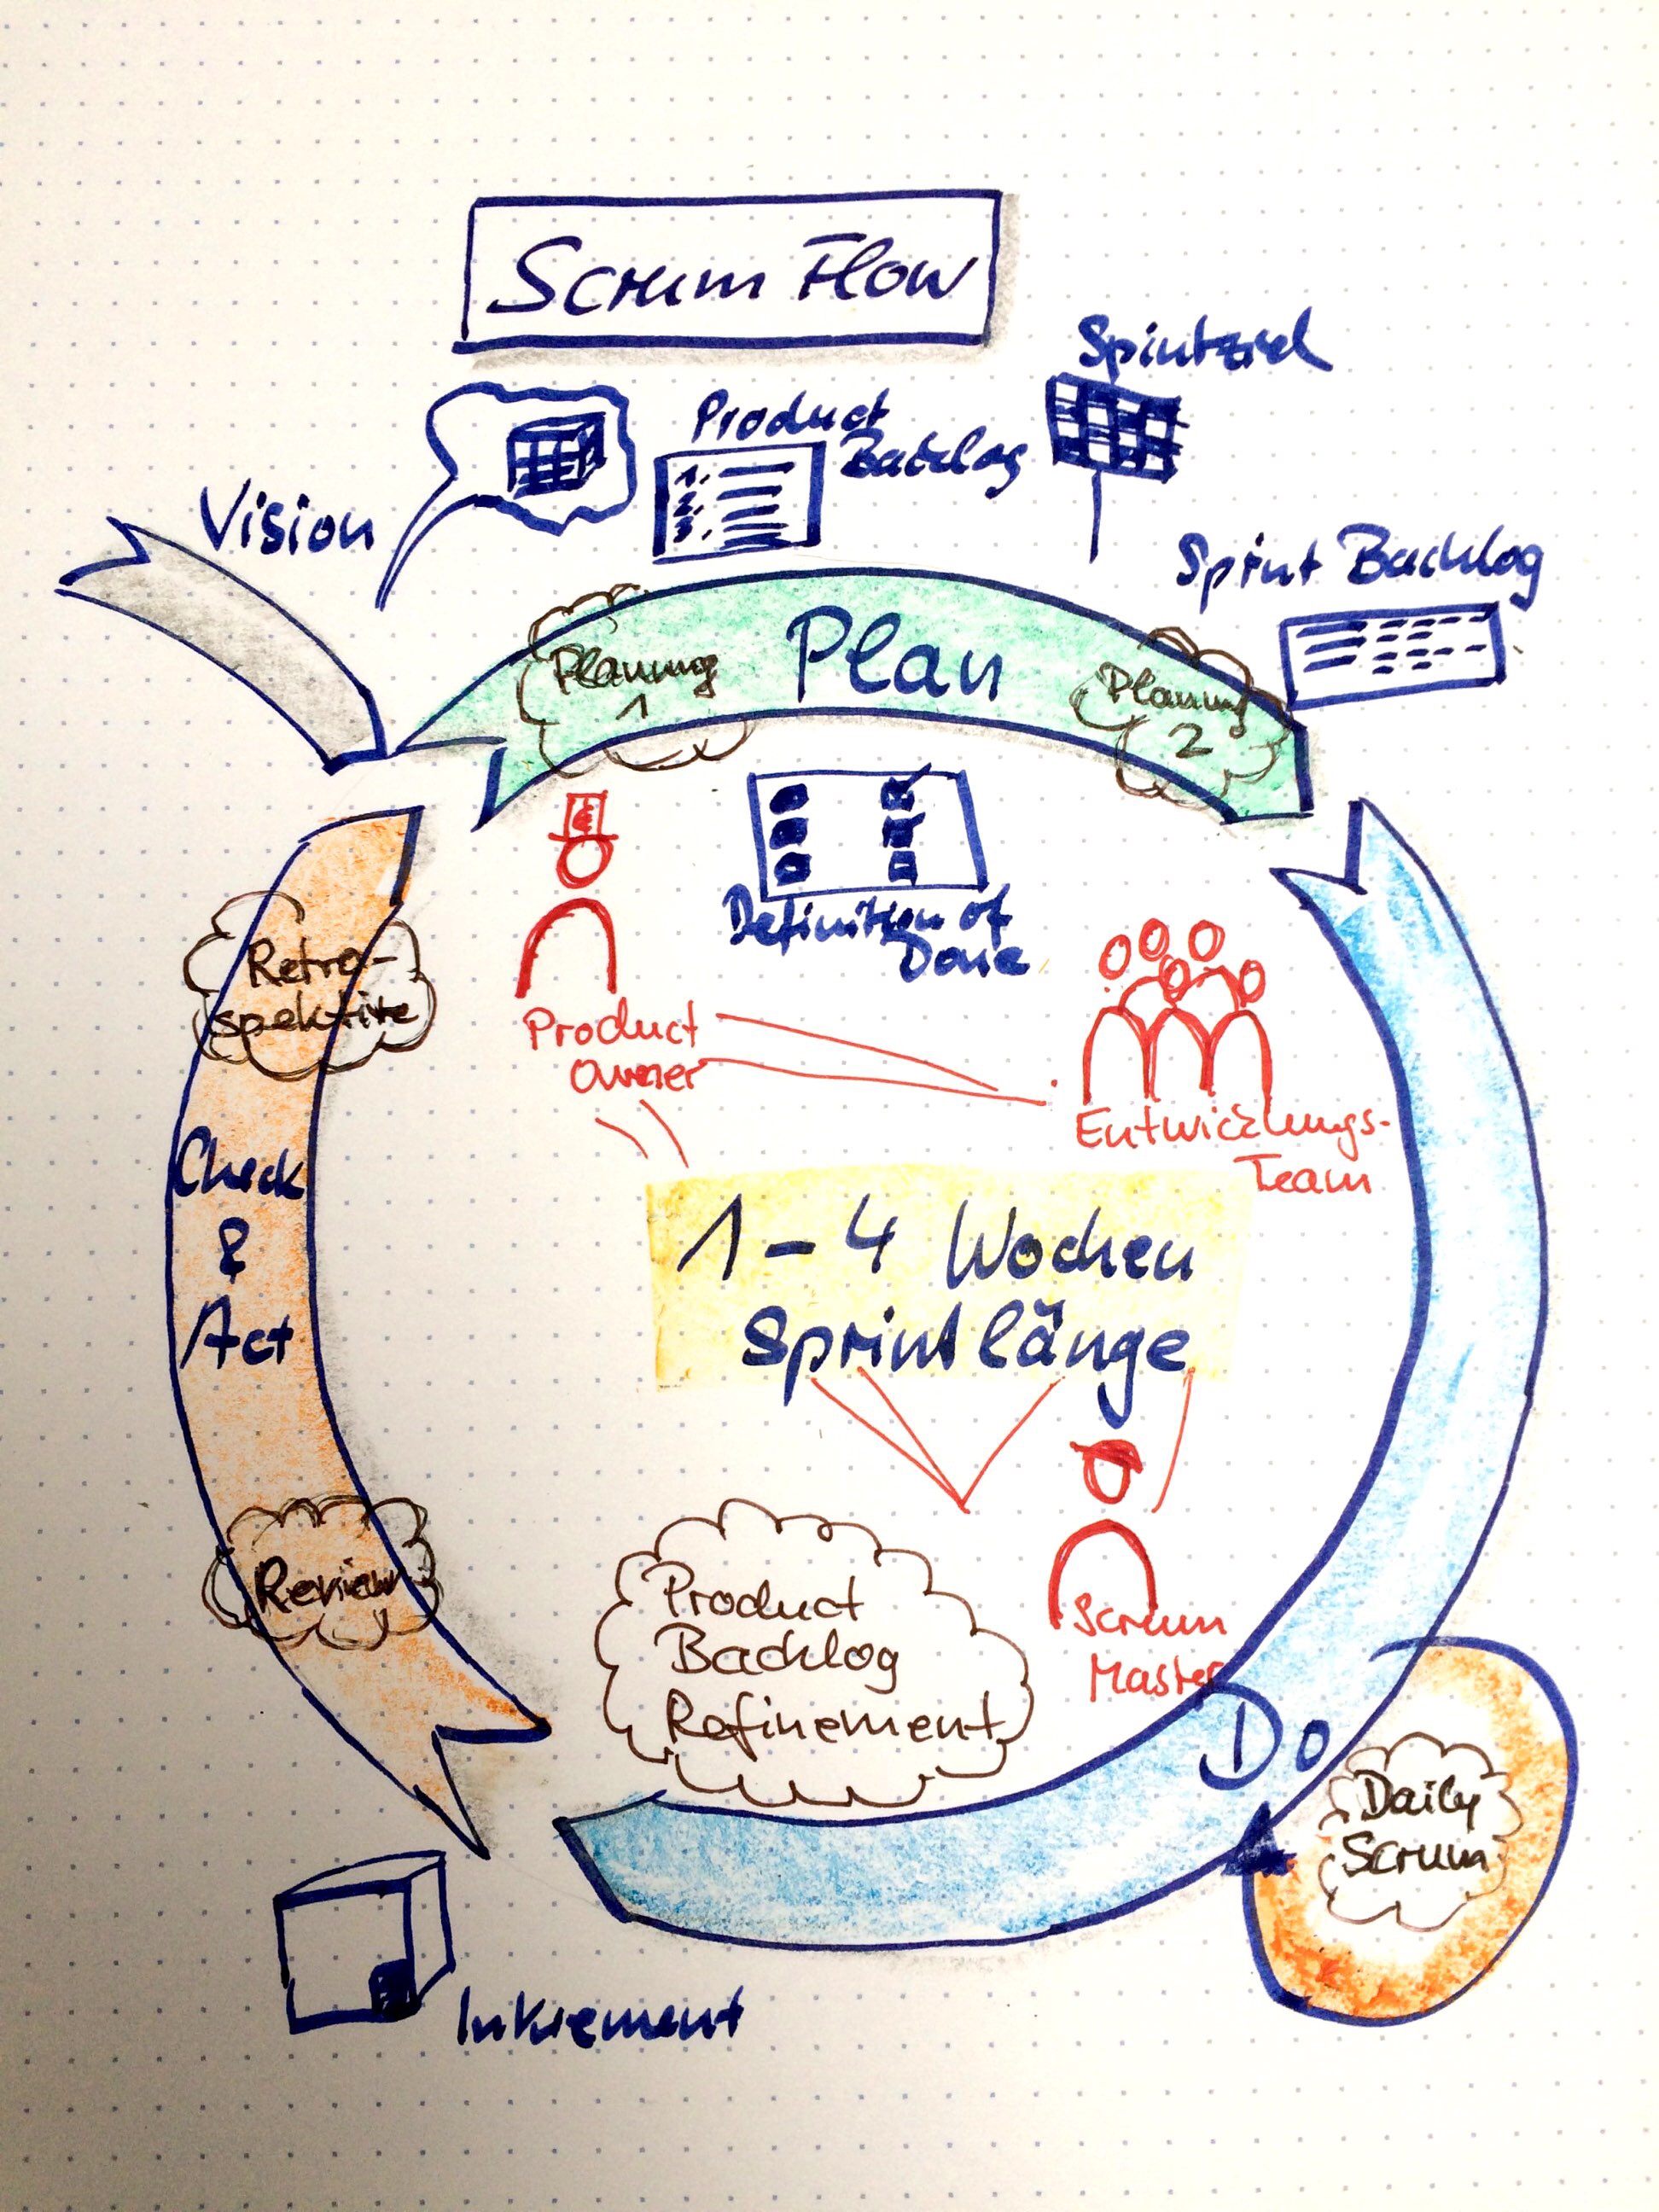 Scrum Flow
Sprintziel
Product
Backlog
Vision
1.
2.
3.
Sprint Backlog
Planning
1
Plan
Planning
2
Definition of
Done
Retro-
spektive
Product
Owner
Entwicklungs-
Team
Check
&
Act
1-4 Wochen
Sprintlänge
Review
Product
Backlog
Refinement
Scrum
Master
Do
Daily
Scrum
Inkrement